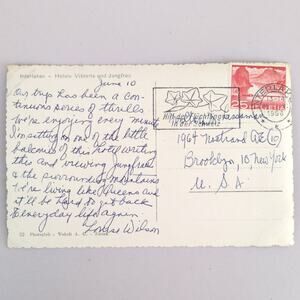 Interlaken - Hotels Viktoria und Jungfrau
June 10
Our trip has been a con-
tinuous series of thrills
We're enjoying every minute
I'm sitting on one of the little
balconies of this hotel writing
this and viewing Jungfrau
& the surrounding mountains
We're living like Queens and
it'll be hard to get back
to everyday life again
Louise Wilson
Hilf der
in der Schweiz
1964 Nostrand Ave
Brooklyn 10, New York
U. S. A.